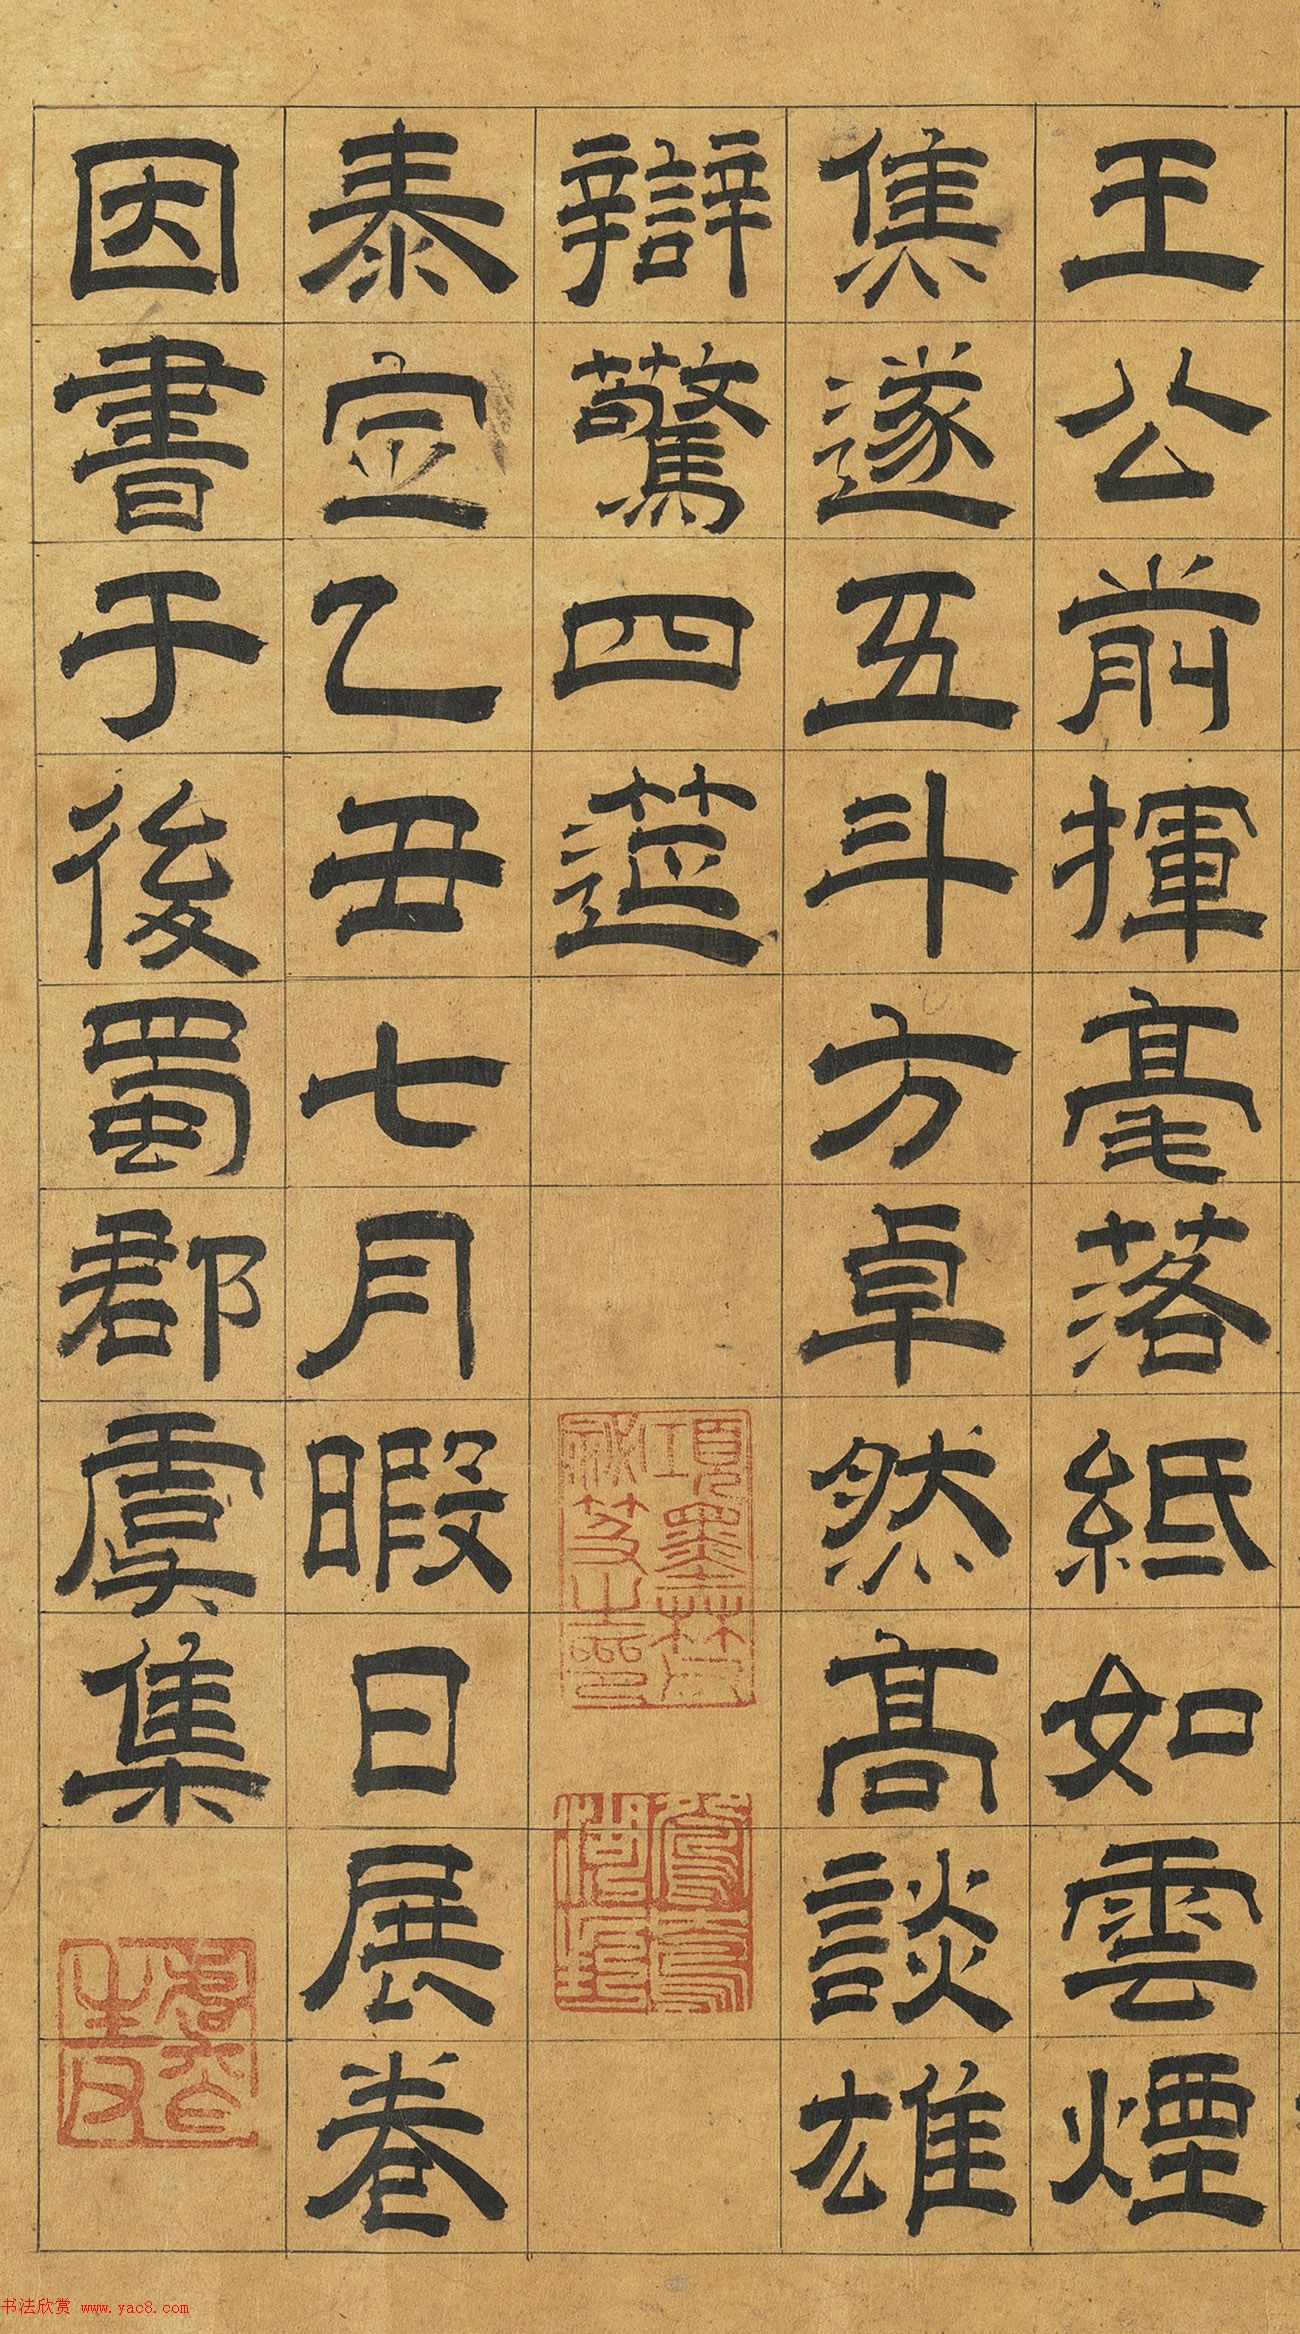 王公前揮毫落紙如雲煙
焦遂五斗方卓然高談雄
辯驚四筵
泰定乙丑七月暇日展卷
因書于後蜀郡虞集
項墨林父
祕笈之印
书法欣赏 www.yac8.com